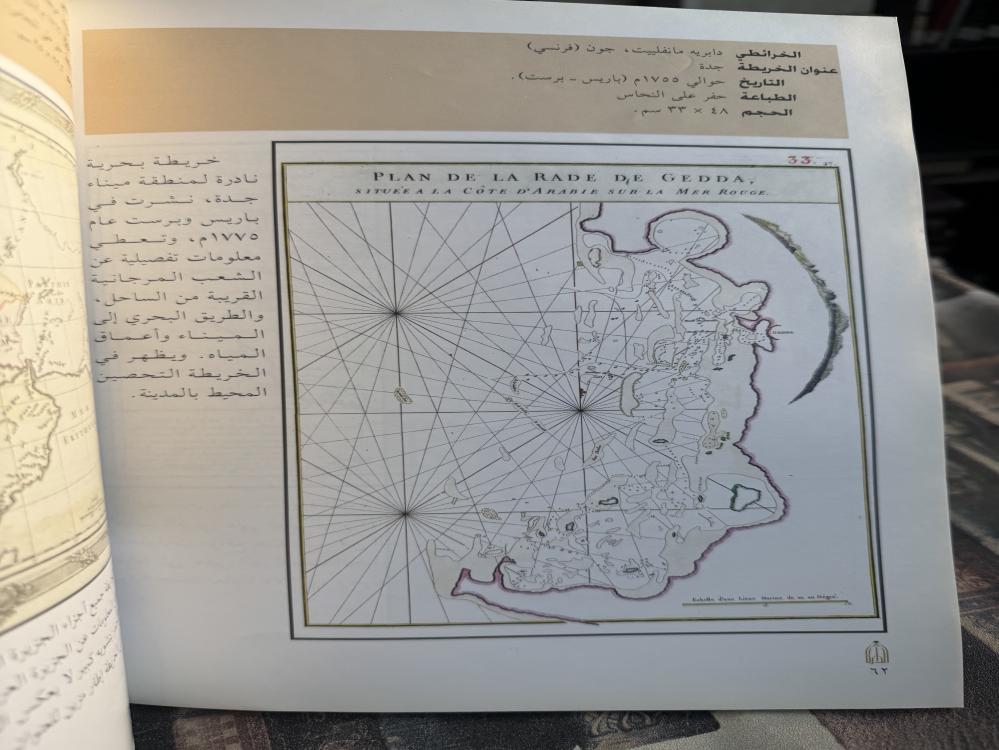 الخرائطي دابريه مانفلييت، جون (فرنسي)
عنوان الخريطة جدة
التاريخ حوالي ١٧٥٥م (باريس - برست).
الطباعة حفر على النحاس
الحجم ٤٨ × ٣٣ سم.
خريطة بحرية
نادرة لمنطقة ميناء
جدة، نشرت في
باريس وبرست عام
١٧٧٥م، وتعطي
معلومات تفصيلية عن
الشعب المرجانية
القريبة من الساحل،
والطريق البحري إلى
الميناء وأعماق
المياه. ويظهر في
الخريطة التحصين
المحيط بالمدينة.
33.
PLAN DE LA RADE DE GEDDA,
SITUÉE A LA CÔTE D'ARABIE SUR LA MER ROUGE.
Echelle d'une Lieue Marine de 20 au Dégré.
٦٢
جميع أجزاء الجزيرة